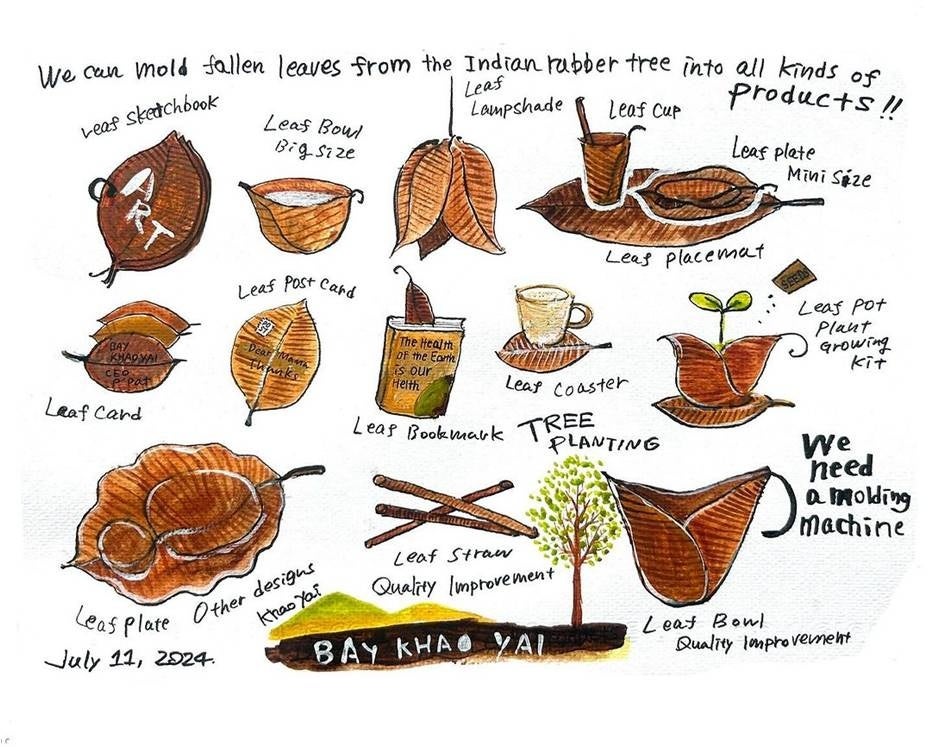 We can mold fallen leaves from the Indian rubber tree into all kinds of
Products!!
Leaf Sketchbook
ART
Leaf Bowl
Big Size
Leaf
Lampshade
Leaf Cup
Leaf plate
Mini Size
Leaf placemat
BAY
KHAO YAI
CEO
P Pat
Leaf Card
Leaf Post Card
Dear Mama
Thanks
The Health
of the Earth
is our
Helth
Leaf Bookmark
Leaf Coaster
SEEDS
Leaf Pot
Plant
Growing
Kit
TREE
PLANTING
We
need
a molding
machine
Leaf plate
Other designs
Khao Yai
Leaf Straw
Quality Improvement
Leaf Bowl
Quality Improvement
July 11, 2024.
BAY KHAO YAI